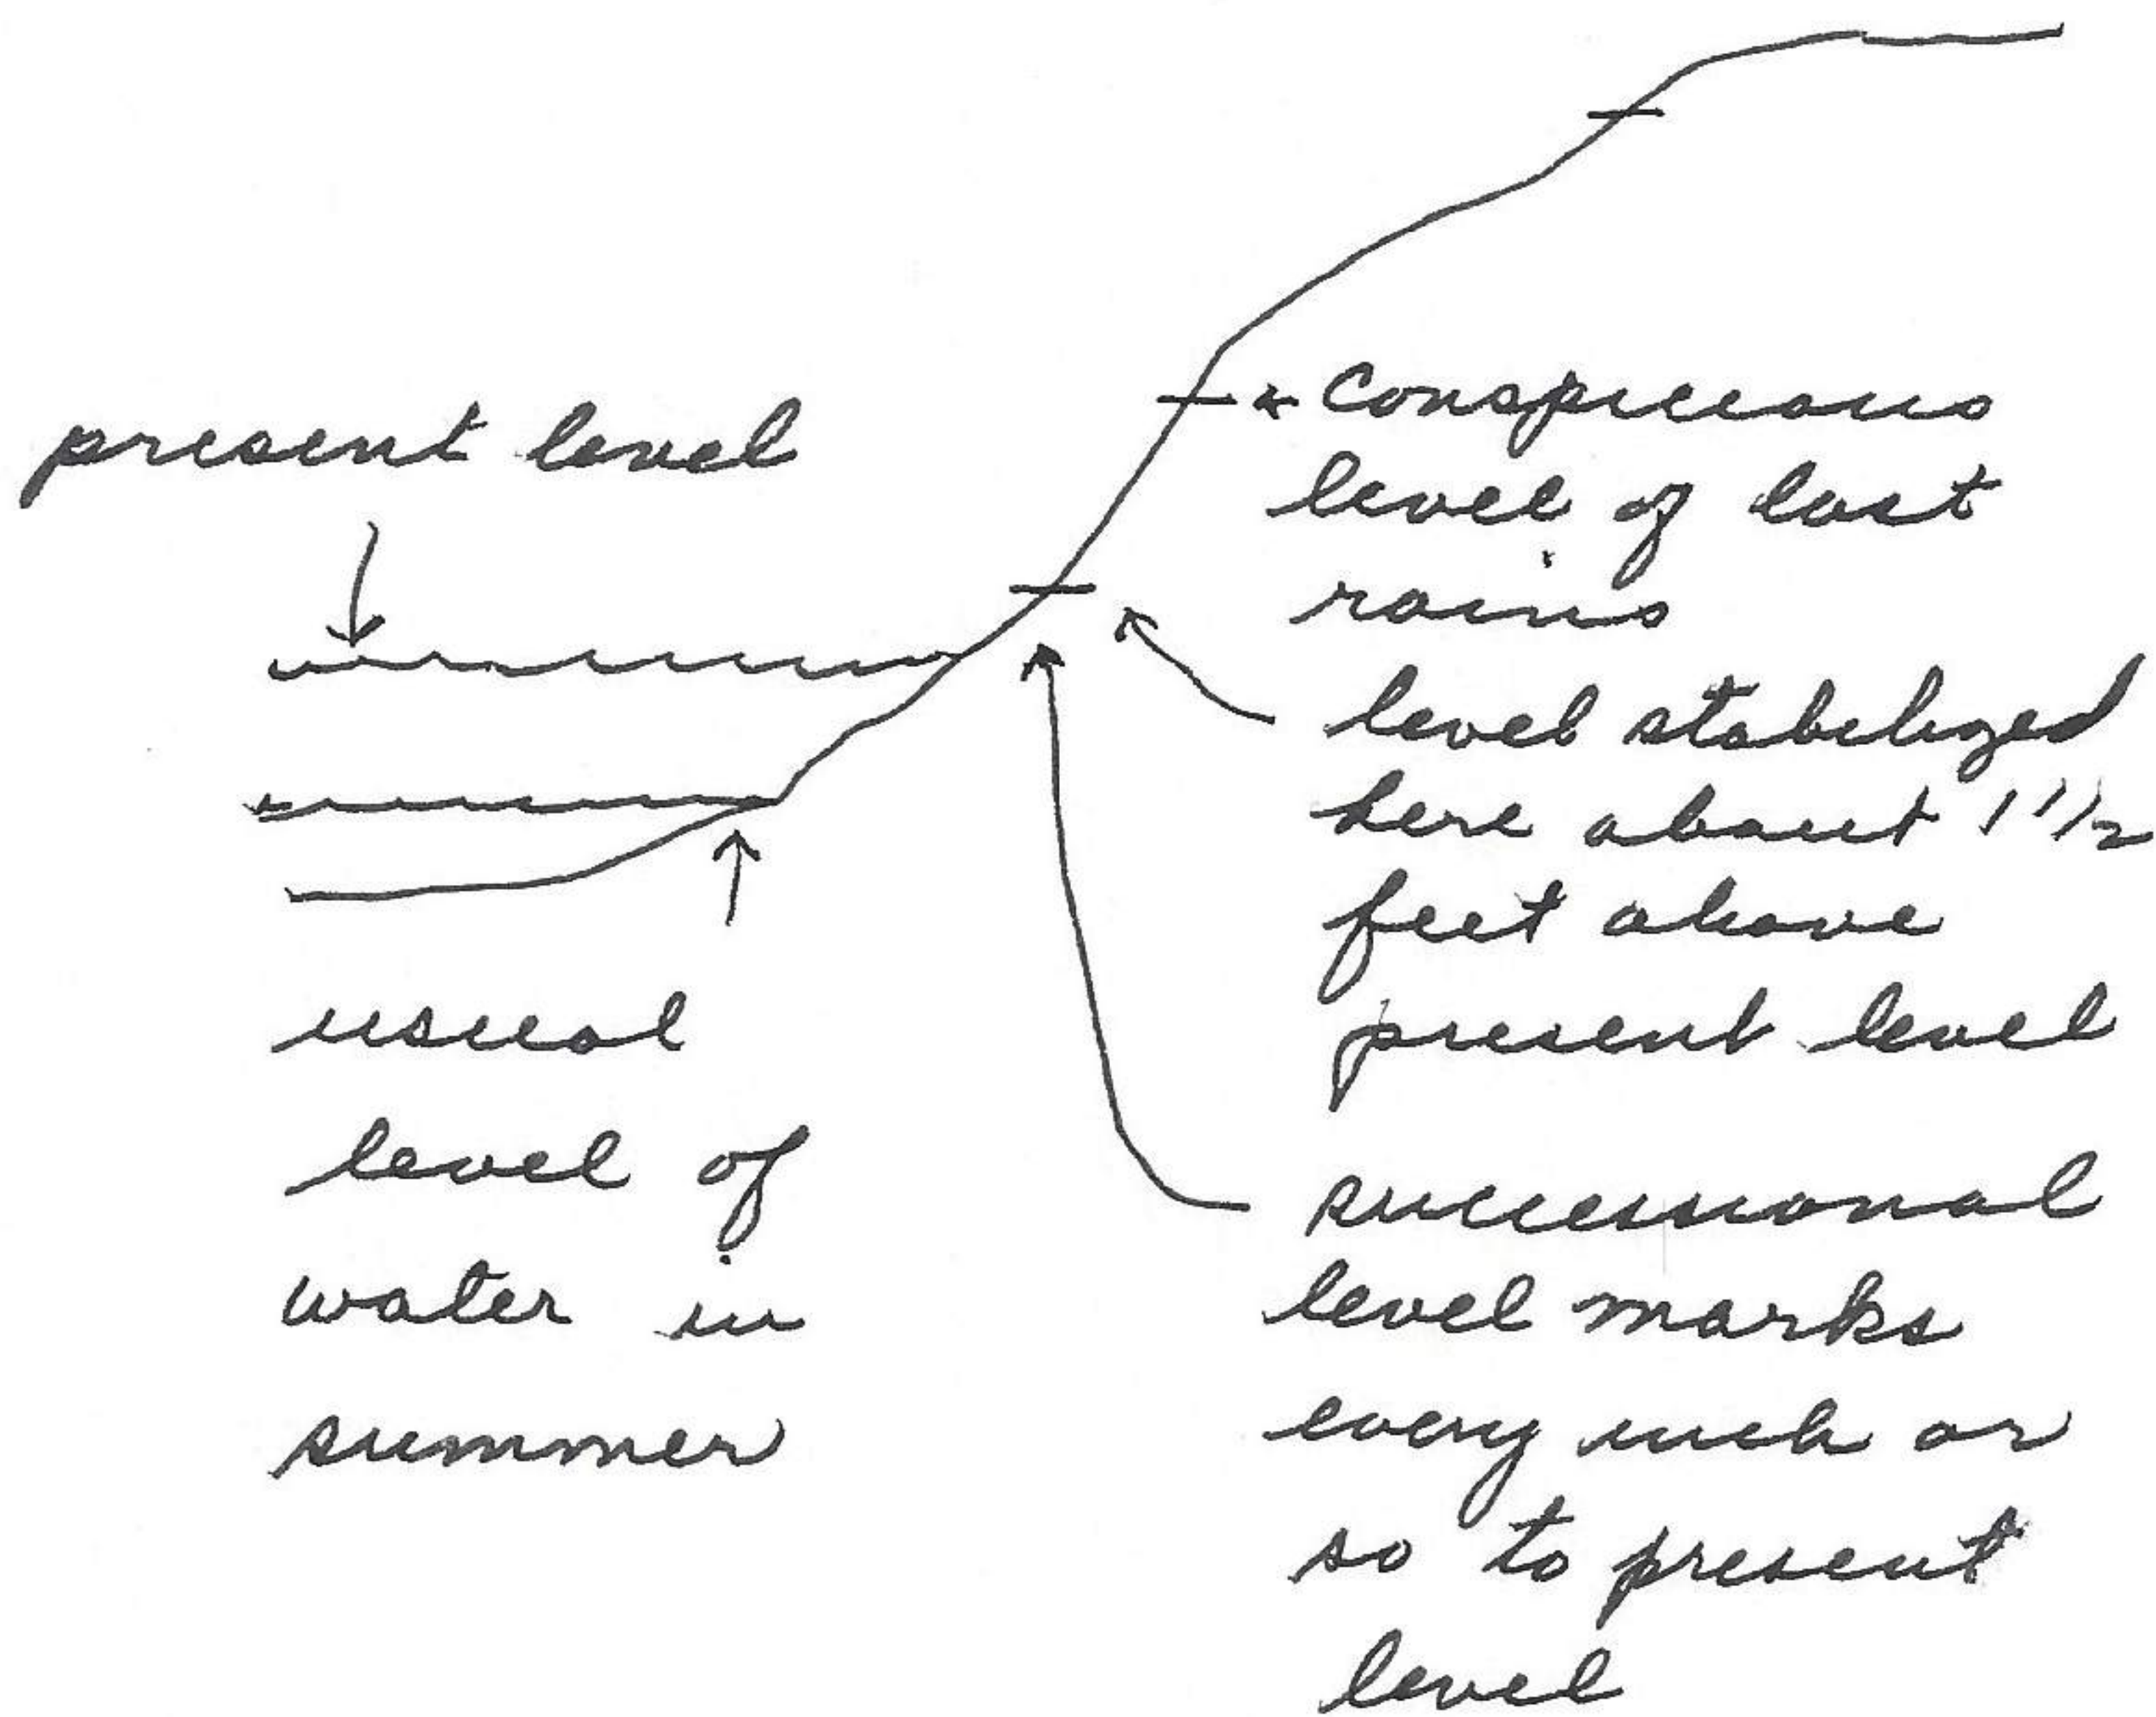 present level
usual
level of
water in
summer
conspicuous
level of last
rains
level stabilized
here about 1 1/2
feet above
present level
successional
level marks
every inch or
so to present
level